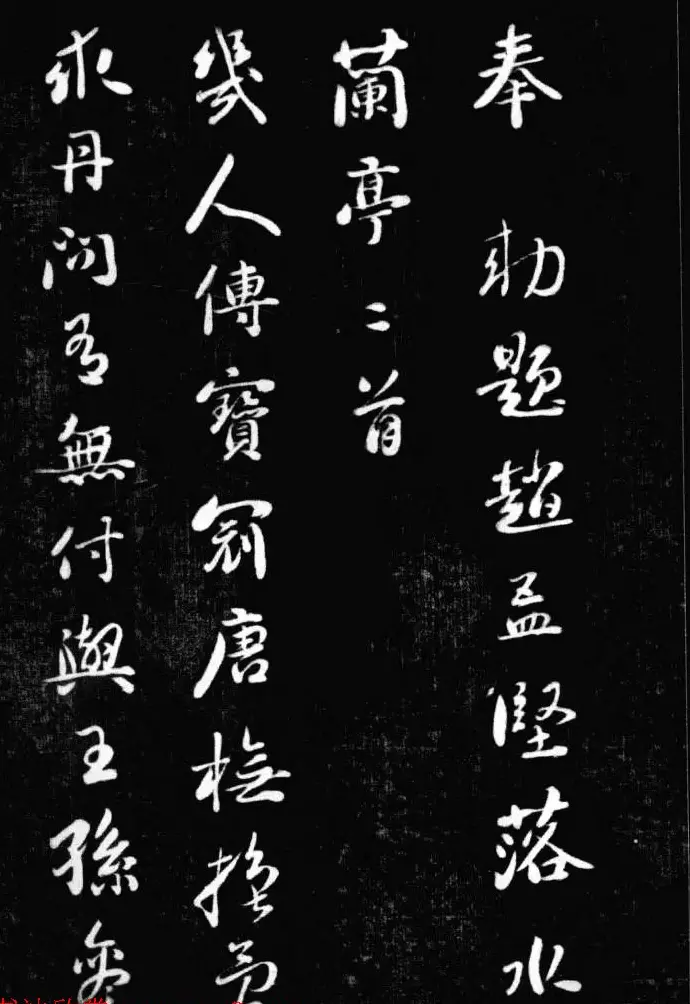 奉 勅題趙孟堅落水
蘭亭二首
幾人傳寶冣唐橅
求丹問有無付與王孫